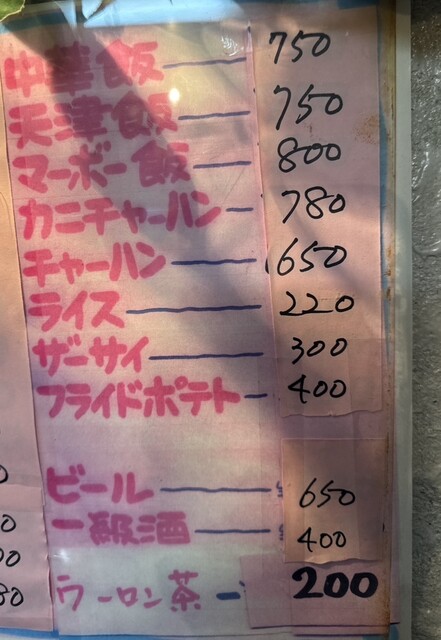 中華飯 — 750
天津飯 — 750
マーボー飯 — 800
カニチャーハン — 780
チャーハン — 650
ライス — 220
ザーサイ — 300
フライドポテト — 400
ビール — 650
一級酒 — 400
ウーロン茶 — 200